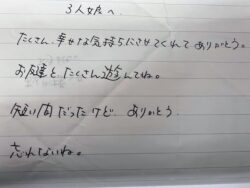 3人女良へ
たくさん、幸せな気持ちにさせてくれて ありがとう。
お友達と、たくさん遊んでね。
短い間だったけど、ありがとう。
忘れないね。